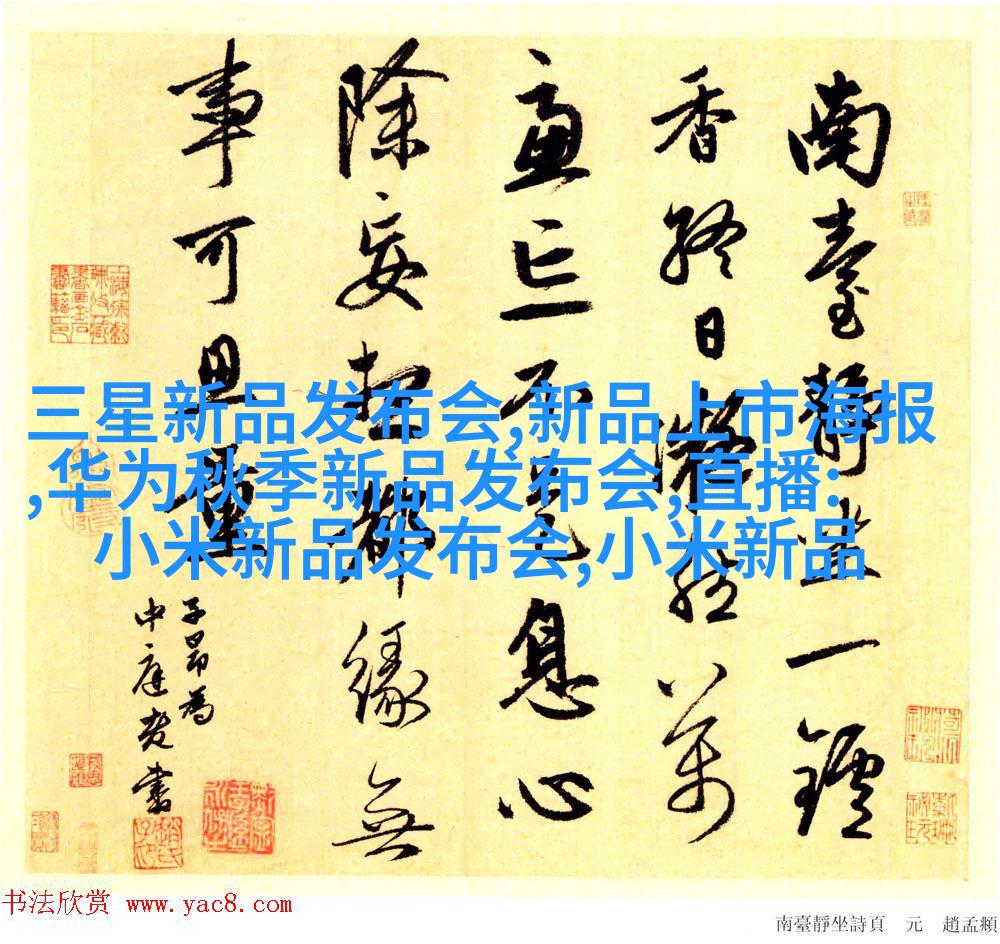 南臺靜坐一鑪
香終日凝然萬
慮亡不是息心
除妄想都緣無
事可思量
子昂為
中庭老書
三星新品发布会,新品上市海报
,华为秋季新品发布会,直播:
小米新品发布会,小米新品
书法欣赏 www.yac8.com
南臺靜坐詩頁 元 趙孟頫